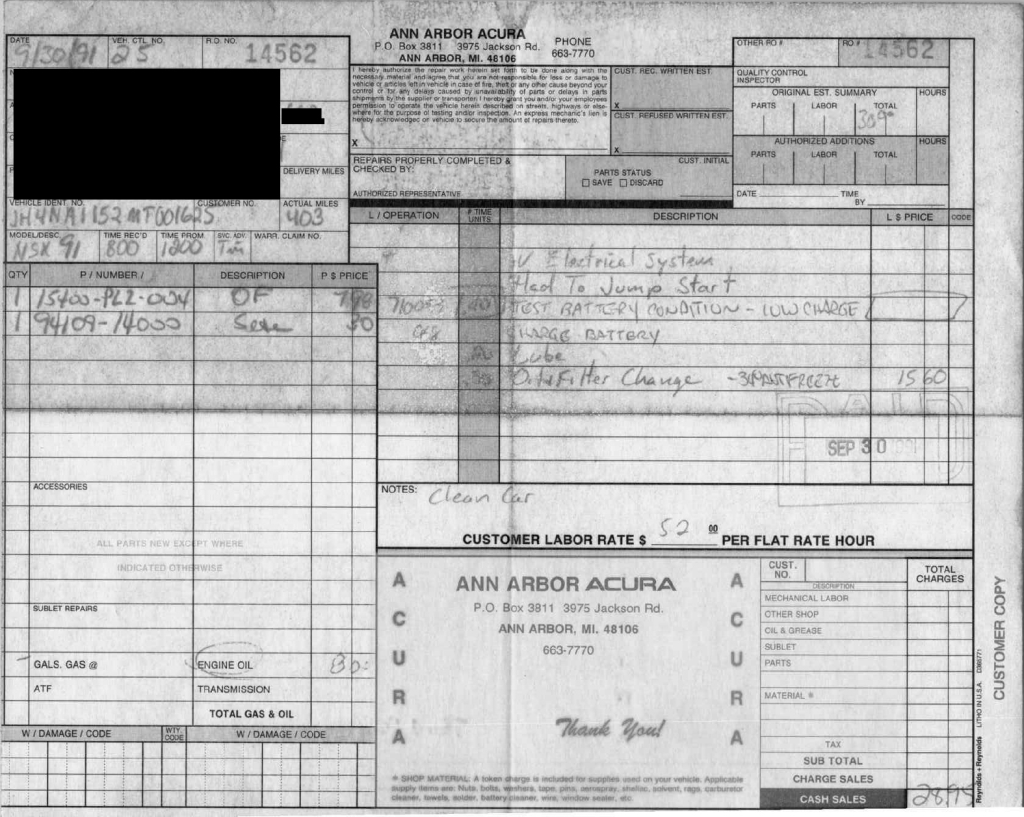 ANN ARBOR ACURA
P.O. Box 3811 3975 Jackson Rd.
ANN ARBOR, MI. 48106
PHONE
663-7770
DATE
9/30/91
VEH. CTL. NO.
25
R.O. NO.
14562
OTHER RO #
RO #
14562
I hereby authorize the repair work herein set forth to be done along with the
necessary material and agree that you are not responsible for loss or damage to
vehicle or articles left in vehicle in case of fire, theft or any other cause beyond your
control or for any delays caused by unavailability of parts or delays in parts
shipments by the supplier or transporter. I hereby grant you and/or your employees
permission to operate the vehicle herein described on streets, highways or else-
where for the purpose of testing and/or inspection. An express mechanic's lien is
hereby acknowledged on vehicle to secure the amount of repairs thereto.
X
CUST. REC. WRITTEN EST.
X
CUST. REFUSED WRITTEN EST.
X
QUALITY CONTROL
INSPECTOR
ORIGINAL EST. SUMMARY
HOURS
PARTS LABOR TOTAL
AUTHORIZED ADDITIONS
HOURS
PARTS LABOR TOTAL
DATE TIME
BY
REPAIRS PROPERLY COMPLETED &
CHECKED BY:
AUTHORIZED REPRESENTATIVE
CUST. INITIAL
PARTS STATUS
SAVE DISCARD
DELIVERY MILES
VEHICLE IDENT. NO.
JH4NA1152MT001625
CUSTOMER NO.
ACTUAL MILES
403
MODEL/DESC.
NSX 91
TIME REC'D
800
TIME PROM.
1200
SVC. ADV.
WARR. CLAIM NO.
QTY P / NUMBER / DESCRIPTION P $ PRICE
1 15400-PL2-004 OF
1 94109-14000 30
ACCESSORIES
ALL PARTS NEW EXCEPT WHERE
INDICATED OTHERWISE
SUBLET REPAIRS
GALS. GAS @ ENGINE OIL
ATF TRANSMISSION
TOTAL GAS & OIL
W / DAMAGE / CODE WTY. CODE W / DAMAGE / CODE
L / OPERATION # TIME UNITS DESCRIPTION L $ PRICE CODE
Electrical System
Had To Jump Start
TEST BATTERY CONDITION - LOW CHARGE
CHARGE BATTERY
Lube
Oil & Filter Change 1560
PAID
SEP 30 1991
NOTES: Clean Car
CUSTOMER LABOR RATE $ 52 00 PER FLAT RATE HOUR
ACURA
ANN ARBOR ACURA
P.O. Box 3811 3975 Jackson Rd.
ANN ARBOR, MI. 48106
663-7770
Thank You!
ACURA
* SHOP MATERIAL: A token charge is included for supplies used on your vehicle. Applicable
supply items are: Nuts, bolts, washers, tape, pins, aerospray, shellac, solvent, rags, carburetor
cleaner, towels, solder, battery cleaner, wire, window sealer, etc.
CUST. NO.
TOTAL CHARGES
DESCRIPTION
MECHANICAL LABOR
OTHER SHOP
OIL & GREASE
SUBLET
PARTS
MATERIAL *
TAX
SUB TOTAL
CHARGE SALES
CASH SALES 28.95
Reynolds + Reynolds LITHO IN U.S.A.
CUSTOMER COPY